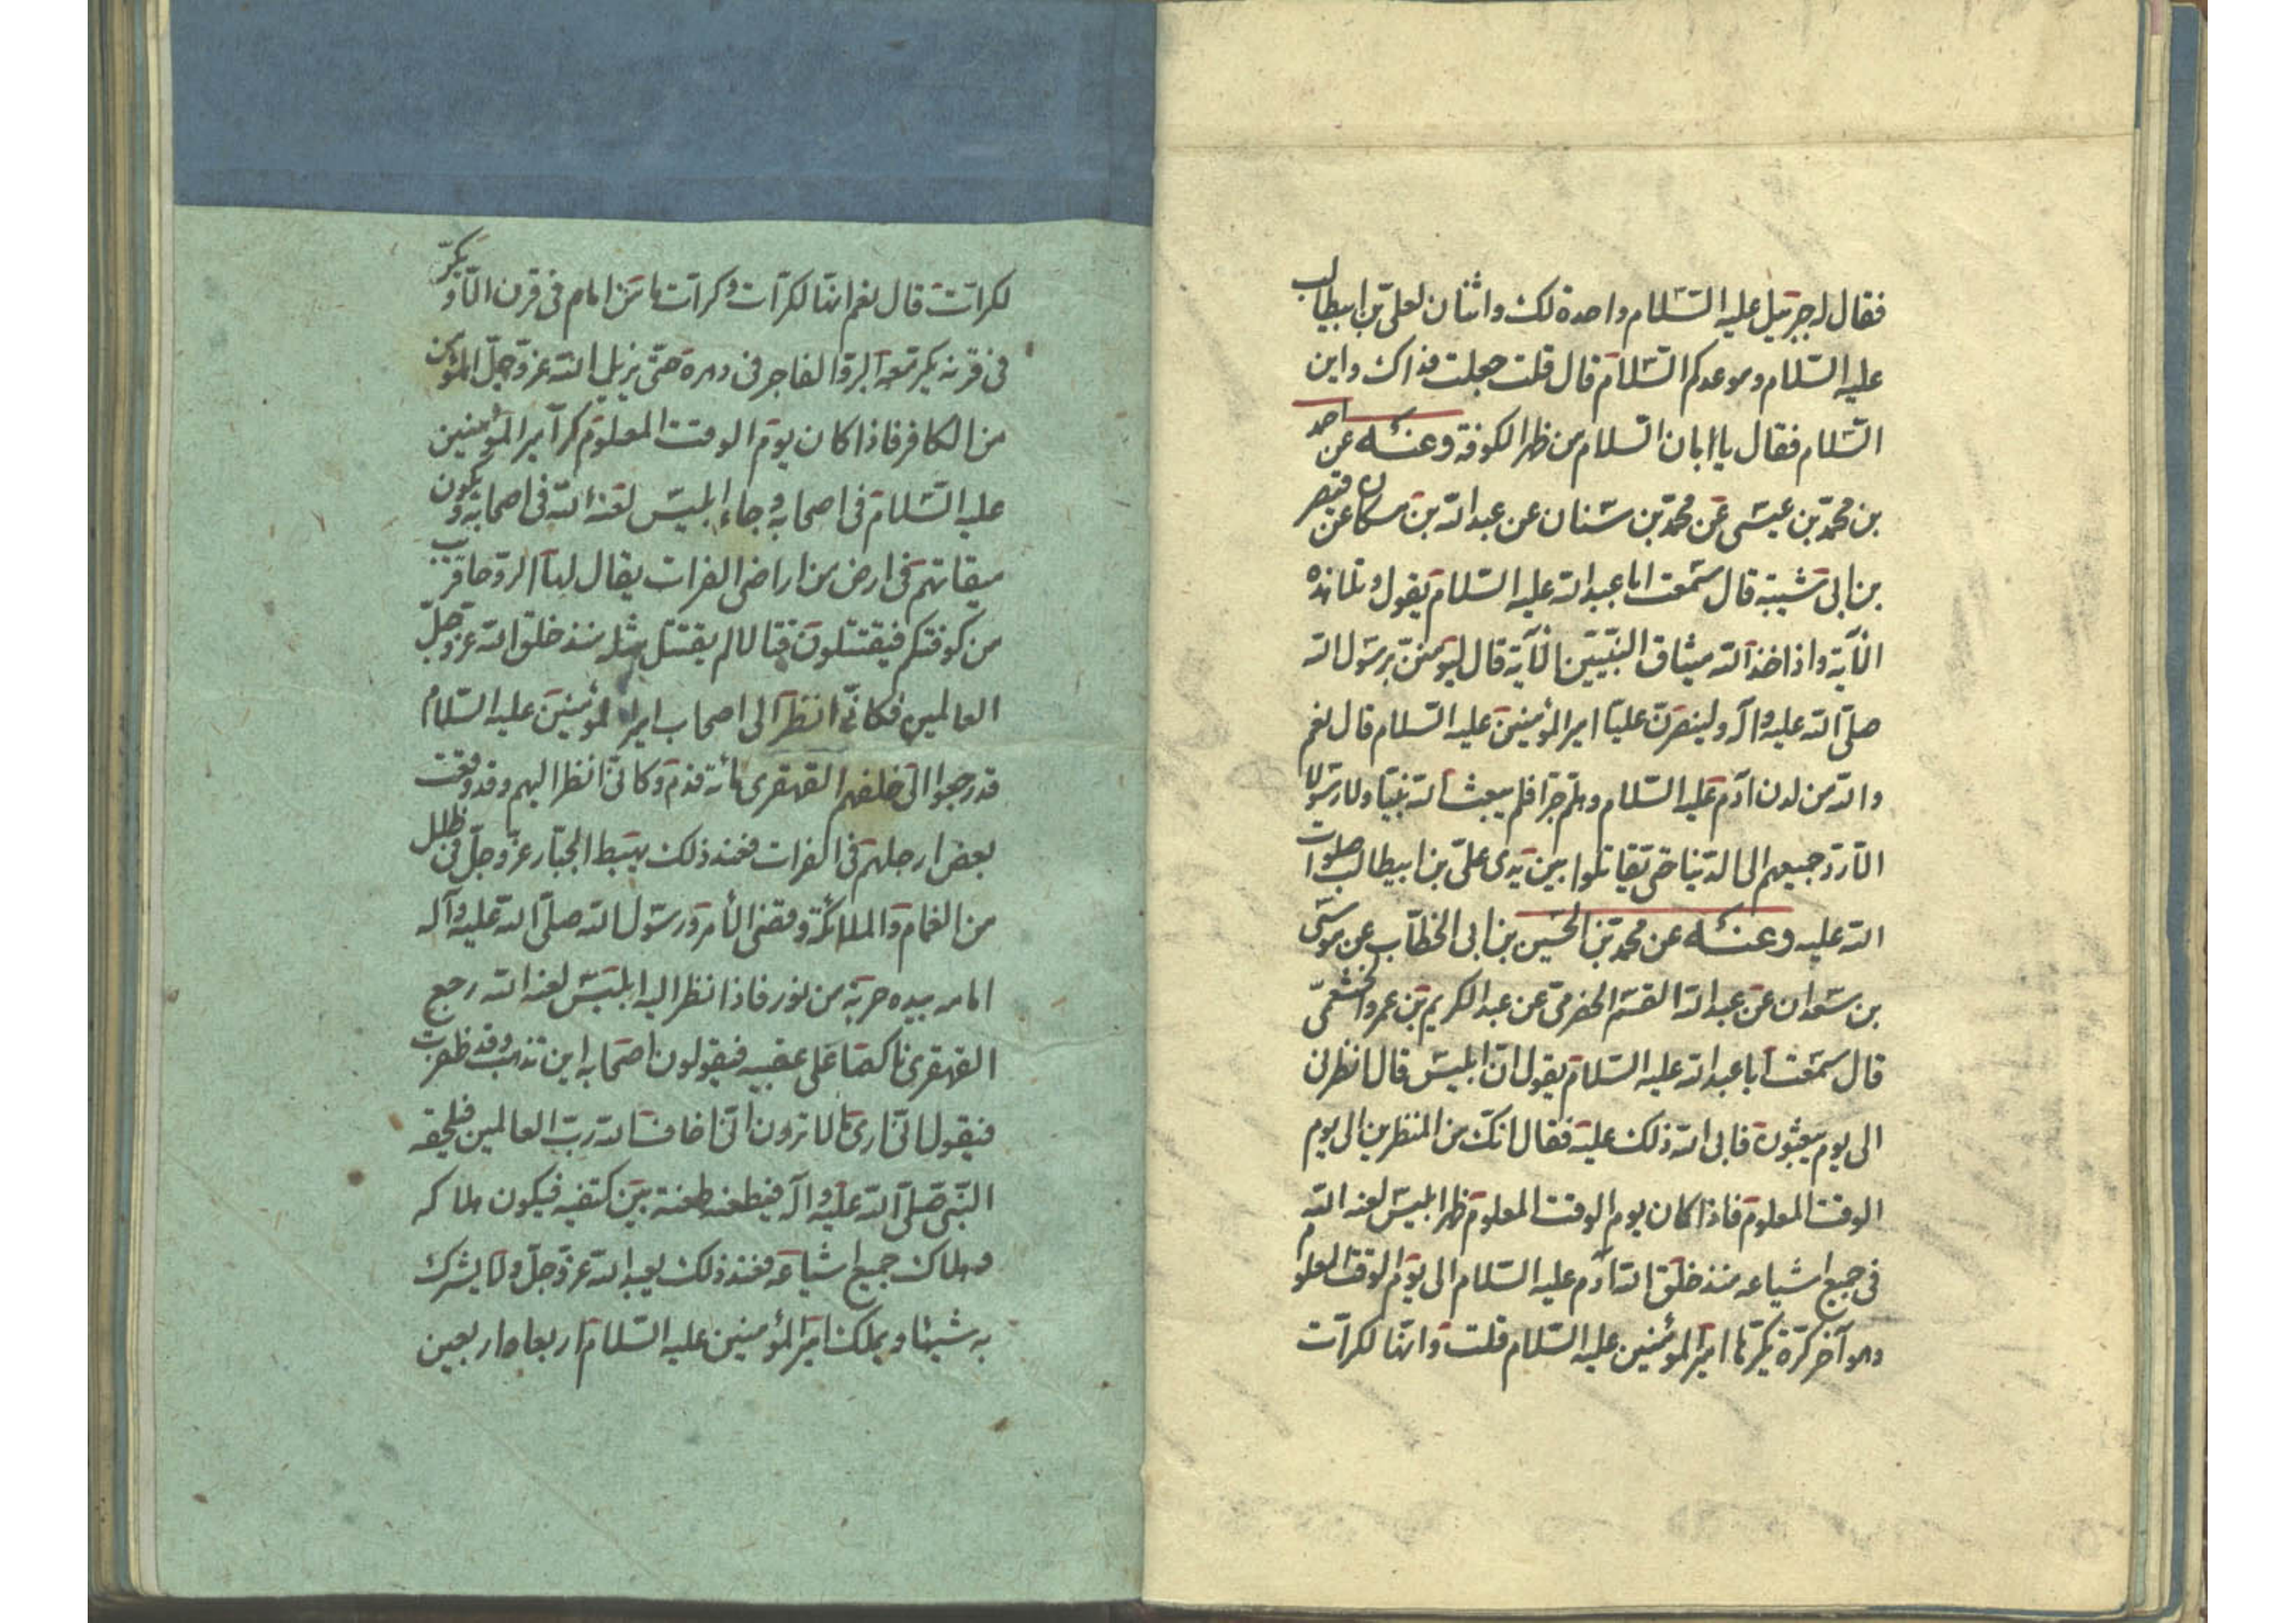 فقال له جبرئيل عليه السّلام واحدة لك واثنان لعليّ بن ابيطالب
عليه السّلام وموعدكم السّلام قال قلت جعلت فداك واين
السّلام فقال يا ابان السّلام من ظهر الكوفة وعنه عن احمد
بن محمّد بن عيسى عن محمّد بن سنان عن عبد الله بن مسكان عن فيض
بن ابى شيبة قال سمعت ابا عبد الله عليه السّلام يقول وتلا هذه
الآية واذ اخذ الله ميثاق النّبيّين الآية قال ليؤمننّ برسول الله
صلّى الله عليه وآله ولينصرنّ عليّا امير المؤمنين عليه السّلام قال نعم
والله من لدن آدم عليه السّلام وهلمّ جرّا فلم يبعث الله نبيّا ولا رسولا
الّا ردّ جميعهم الى الدّنيا حتّى يقاتلوا بين يدى علىّ بن ابيطالب صلوات
الله عليه وعنه عن محمّد بن الحسين بن ابى الخطّاب عن موسى
بن سعدان عن عبد الله القسم الحضرمىّ عن عبد الكريم بن عمرو الخثعمىّ
قال سمعت ابا عبد الله عليه السّلام يقول انّ ابليس قال انظرنى
الى يوم يبعثون فابى الله ذلك عليه فقال انّك من المنظرين الى يوم
الوقت المعلوم فاذا كان يوم الوقت المعلوم ظهر ابليس لعنه الله
فى جميع اشياعه منذ خلق الله آدم عليه السّلام الى يوم الوقت المعلوم
وهو آخر كرّة يكرّها امير المؤمنين عليه السّلام قلت وانّها لكرّات
لكرّات قال نعم انّها لكرّات وكرّات ما من امام فى قرن الّا ويكرّ
فى قرنه يكرّ معه البرّ والفاجر فى دهره حتّى يزيل الله عزّ وجلّ المؤمن
من الكافر فاذا كان يوم الوقت المعلوم كرّ امير المؤمنين
عليه السّلام فى اصحابه وجاء ابليس لعنه الله فى اصحابه ويكون
ميقاتهم فى ارض من اراضى الفرات يقال لها الرّوحا قريب
من كوفتكم فيقتتلون قتالا لم يقتتل مثله منذ خلق الله عزّ وجلّ
العالمين فكانّى انظر الى اصحاب امير المؤمنين عليه السّلام
قد رجعوا الى خلفهم القهقرى مائة قدم وكانّى انظر اليهم وقد وقعت
بعض ارجلهم فى الفرات فعند ذلك يهبط الجبّار عزّ وجلّ فى ظلل
من الغمام والملائكة وقضى الأمر ورسول الله صلّى الله عليه وآله
امامه بيده حربة من نور فاذا نظر اليه ابليس لعنه الله رجع
القهقرى ناكصا على عقبيه فيقولون اصحابه اين تذهب وقد ظفرت
فيقول انّى ارى ما لا ترون انّى اخاف الله ربّ العالمين فيلحقه
النّبى صلّى الله عليه وآله فيطعنه طعنة بين كتفيه فيكون هلاكه
وهلاك جميع اشياعه فعند ذلك يعبد الله عزّ وجلّ ولا يشرك
به شيئا ويملك امير المؤمنين عليه السّلام اربعا واربعين